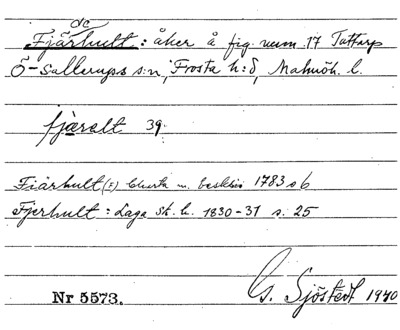 de
Fjärhult: åker å fig. num. 17 Tattarp
Ö-Sallerups s:n, Frosta h:d, Malmöh. l.
fjæralt 39.
Fiärhult(s) Charta m. beskbis 1783 s 6
Fjerhult: Laga sk. h. 1830-31 s. 25
G. Sjöstedt 1940
Nr 5573.